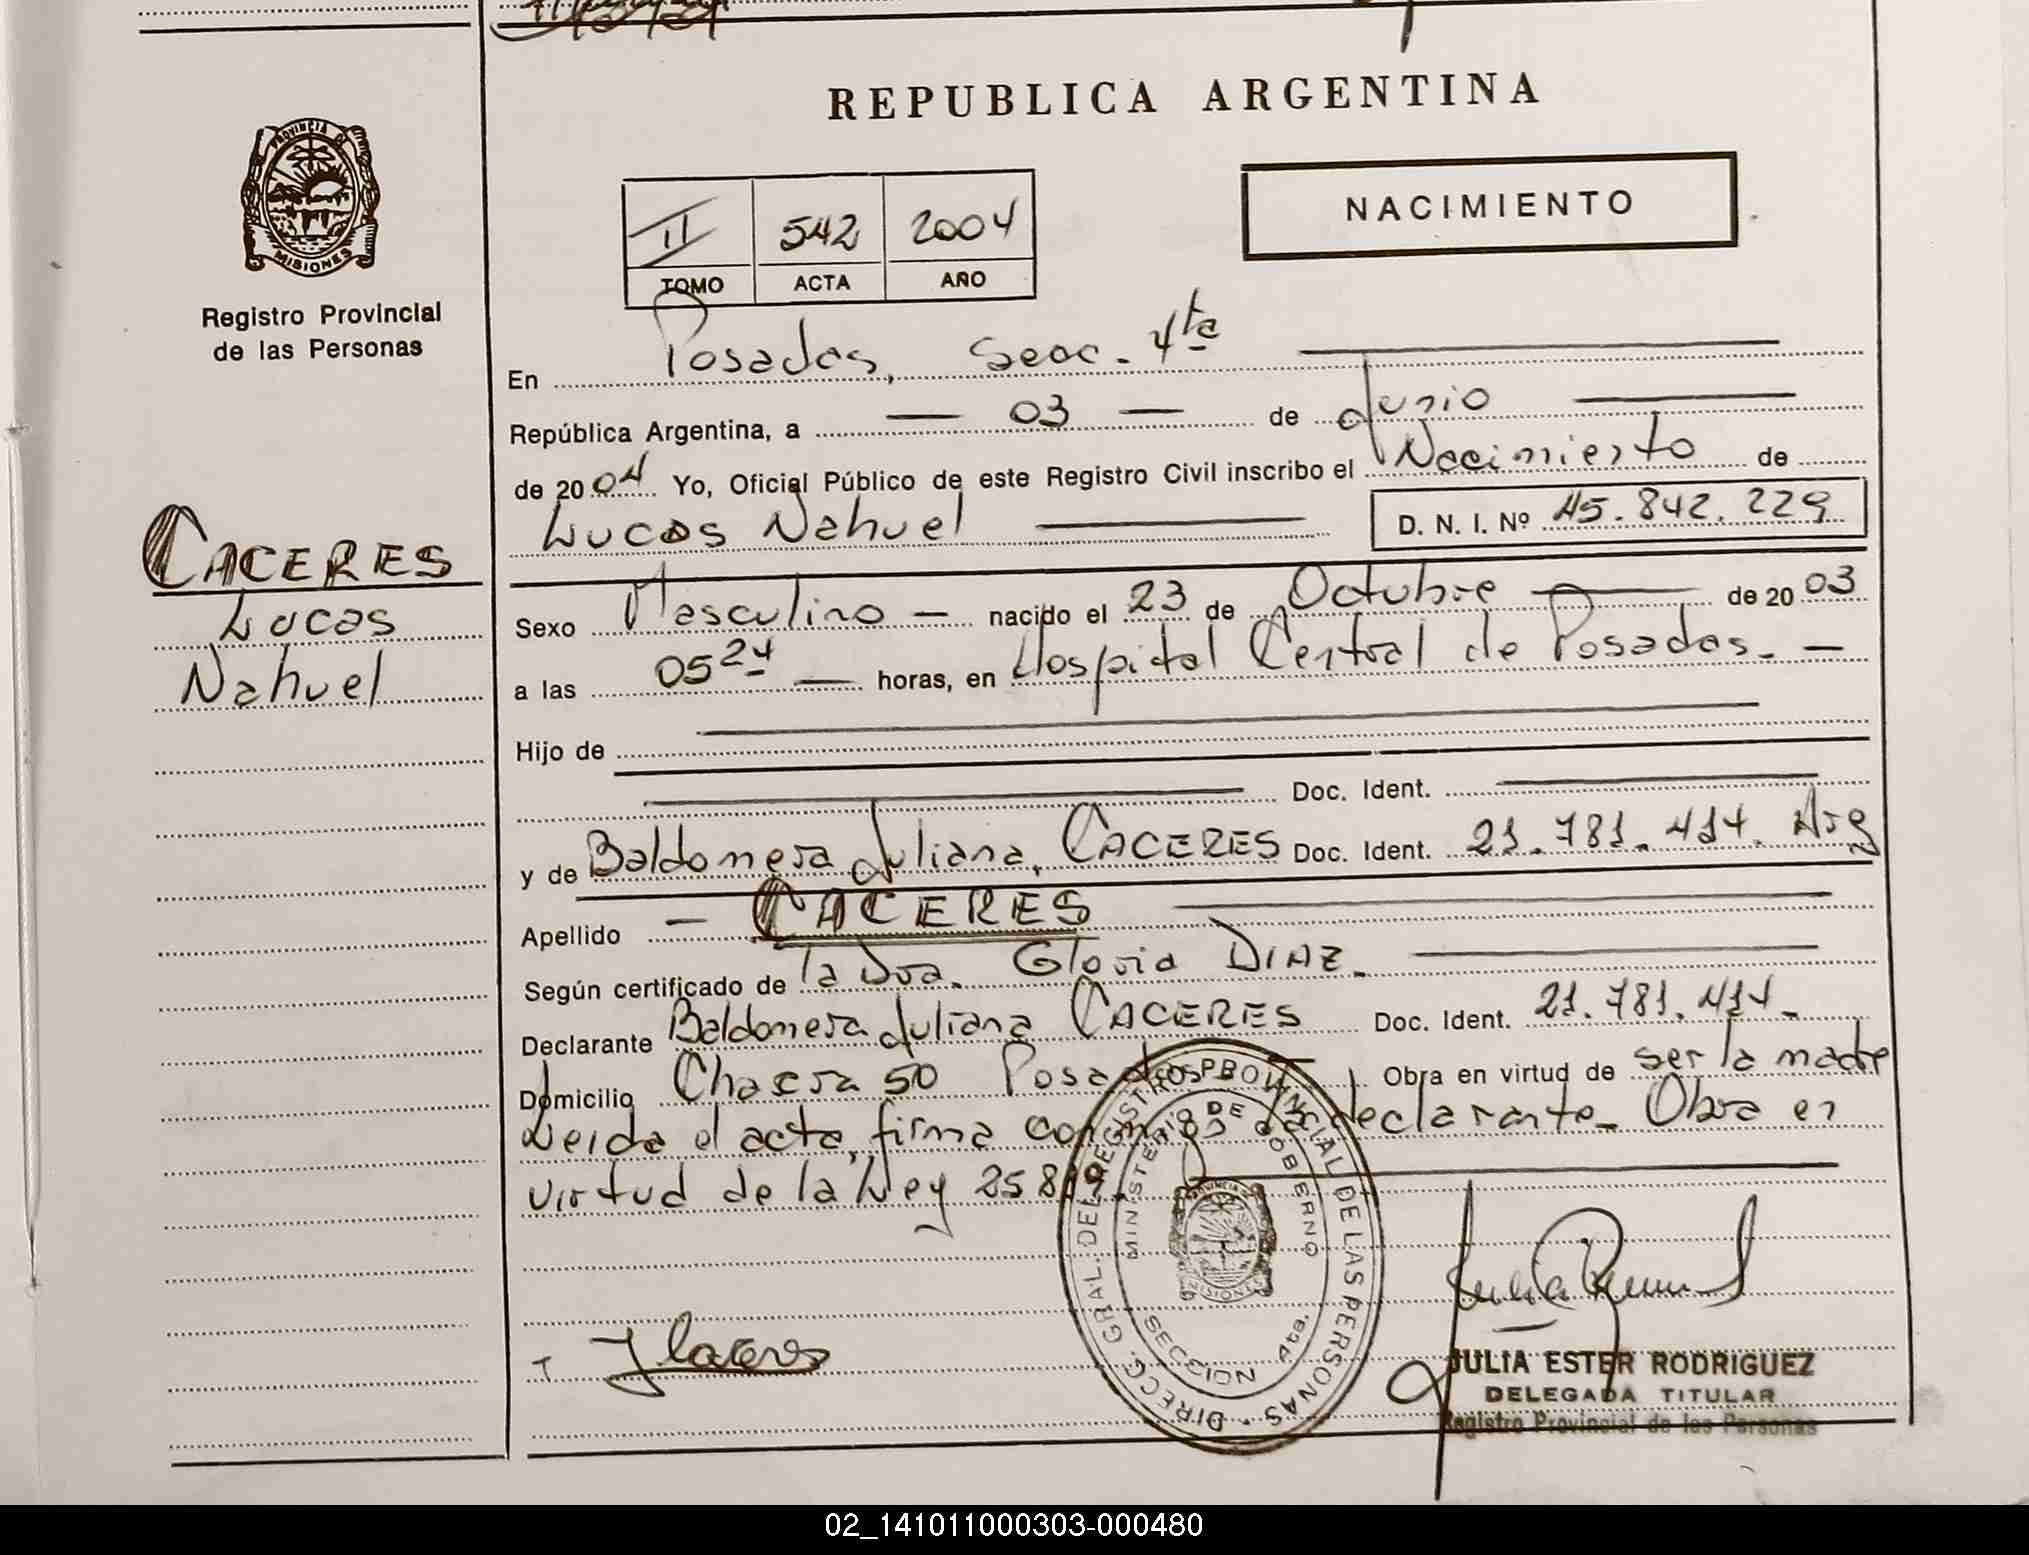 REPUBLICA ARGENTINA
PROVINCIA DE
MISIONES
Registro Provincial
de las Personas
NACIMIENTO
II 542 2004
TOMO ACTA AÑO
En Posadas, Secc. 4ta
República Argentina, a 03 de Junio
de 2004 Yo, Oficial Público de este Registro Civil inscribo el Nacimiento de
Lucas Nahuel D. N. I. Nº 45.842.229
CACERES
Lucas
Nahuel
Sexo Masculino - nacido el 23 de Octubre de 2003
a las 05 24 horas, en Hospital Central de Posadas. -
Hijo de
Doc. Ident.
y de Baldomera Juliana, CACERES Doc. Ident. 21.781.414. Arg
Apellido - CACERES
Según certificado de la Dra. Gloria DIAZ.
Declarante Baldomera Juliana CACERES Doc. Ident. 21.781.414.
Domicilio Chacra 50 Posadas Obra en virtud de ser la madre
Leida el acta, firma conmigo la declarante. Obra en
virtud de la Ley 25819
DIRECC. GRAL. DEL REGISTRO PROVINCIAL DE LAS PERSONAS
MINISTERIO DE GOBIERNO
SECCION 4ta.
J Caceres
JULIA ESTER RODRIGUEZ
DELEGADA TITULAR
Registro Provincial de las Personas
02_141011000303-000480